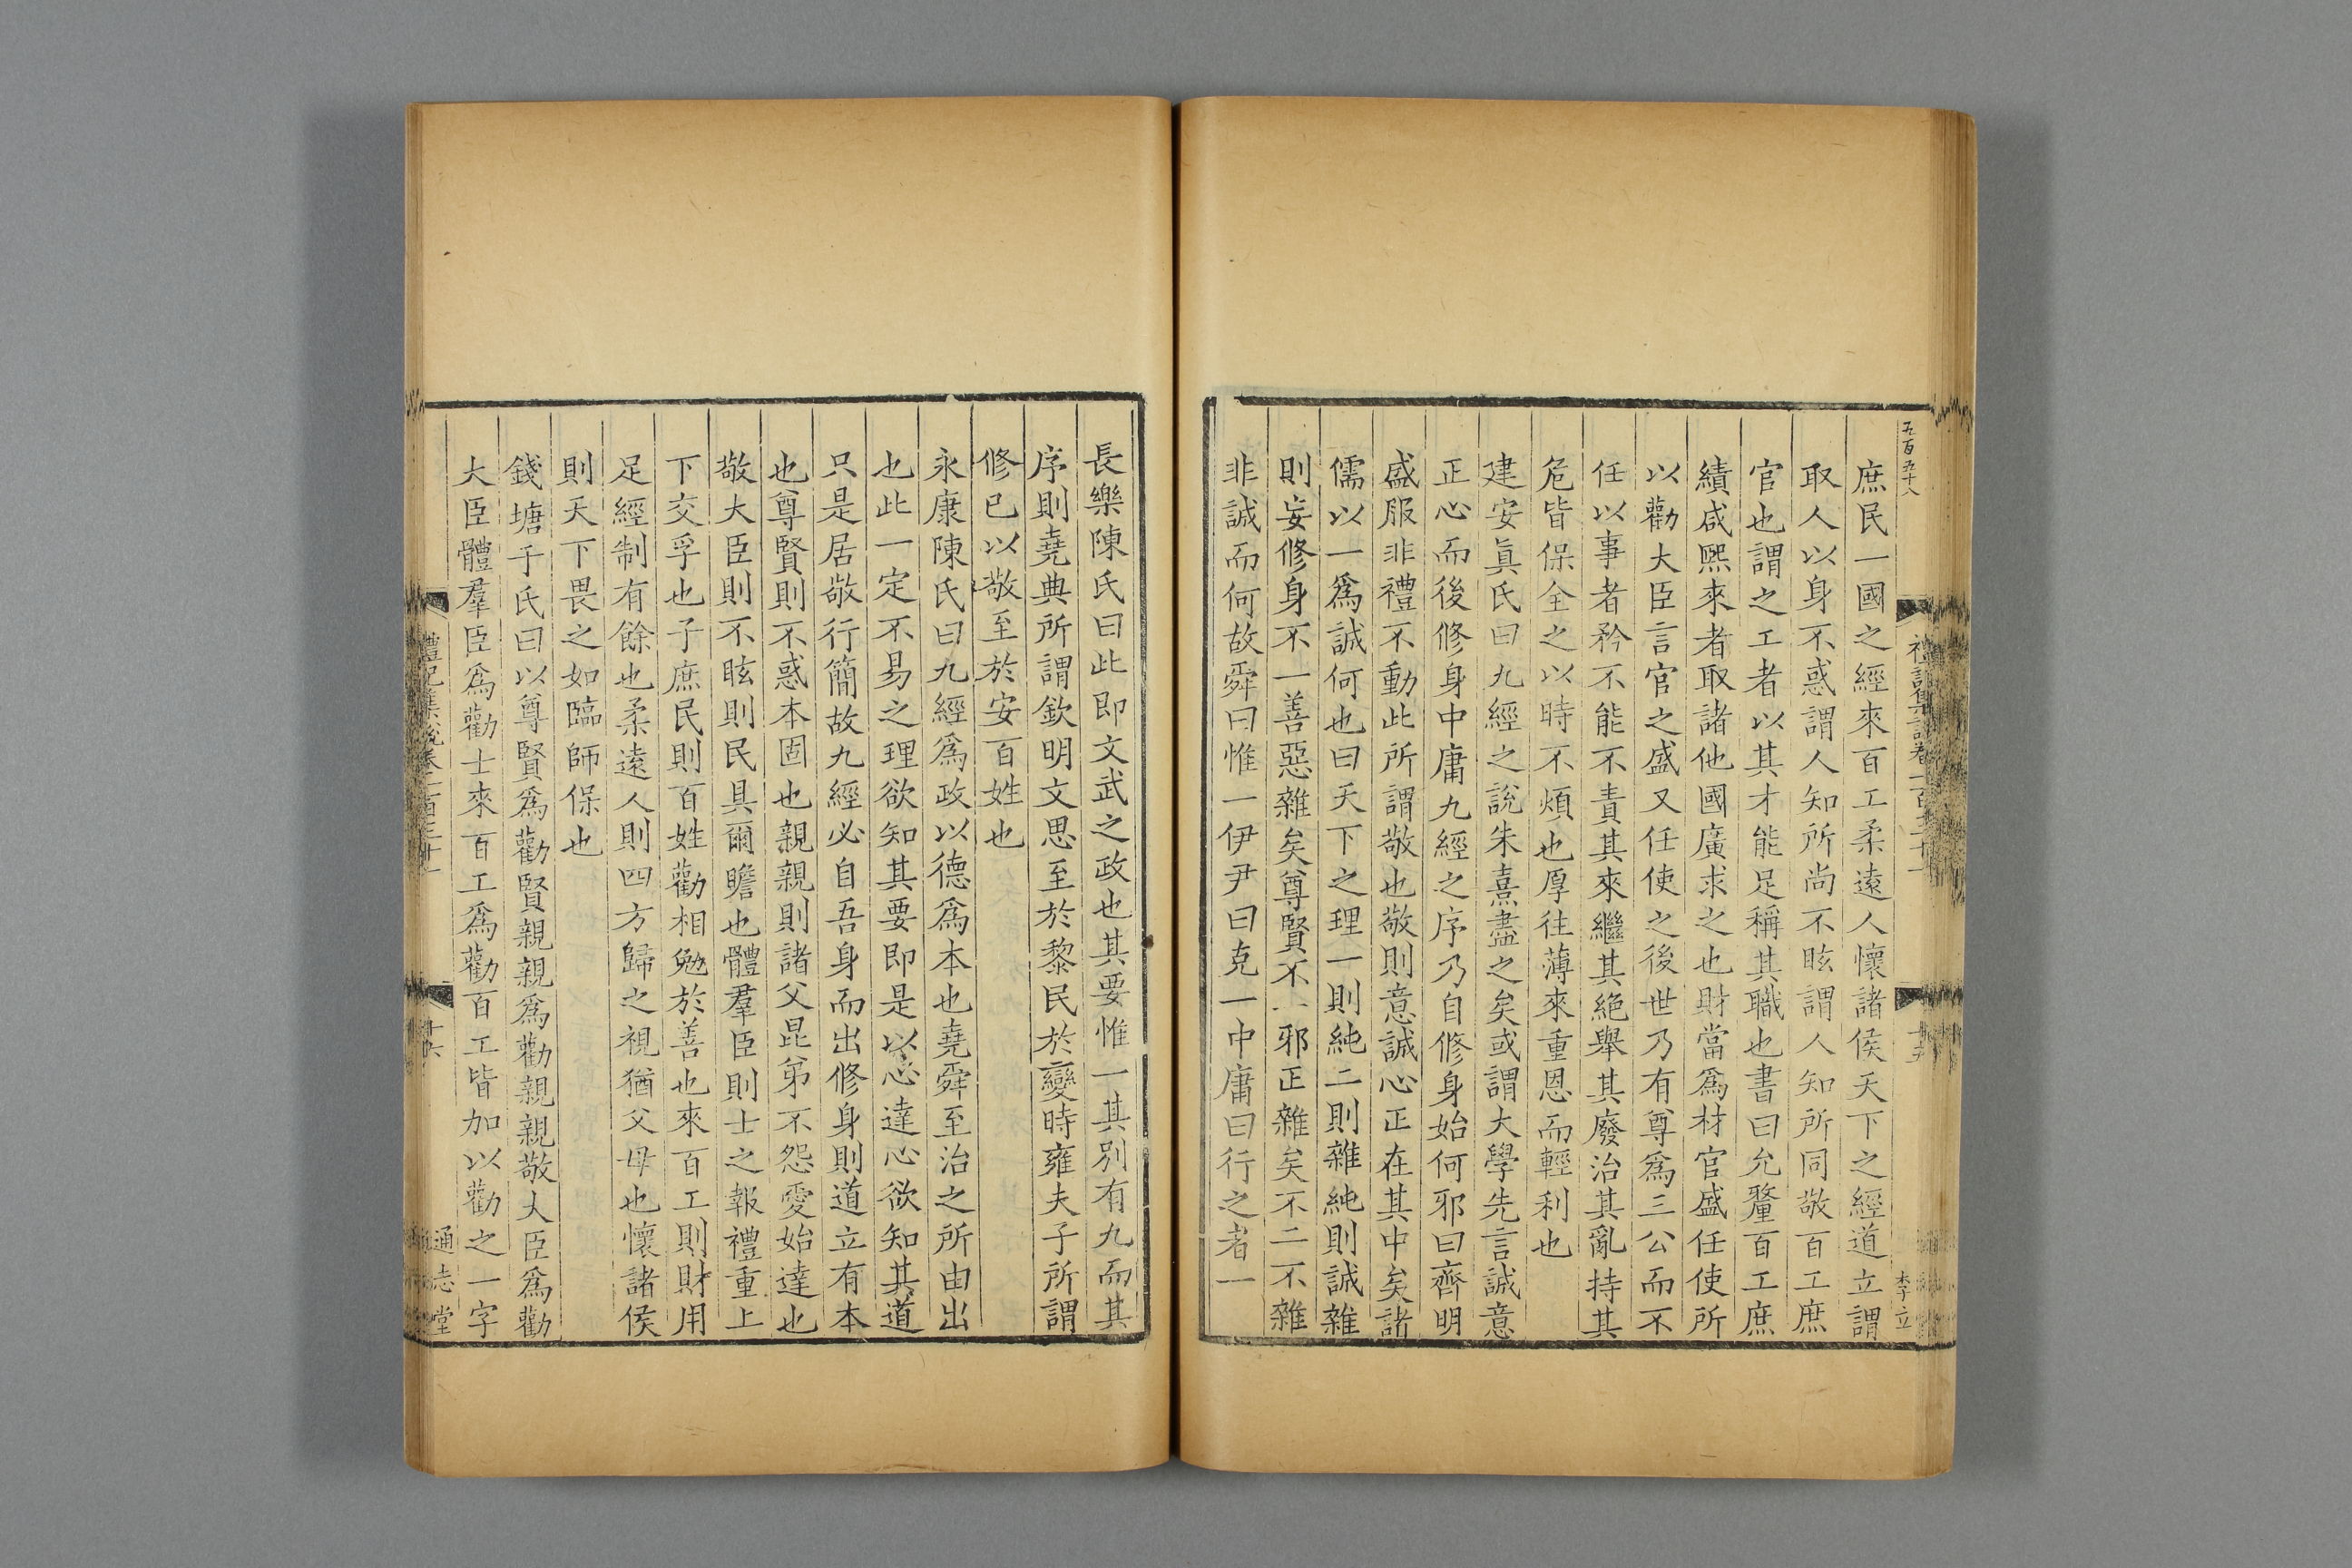 五百五十八
禮記集說卷一百三十一
十五
李立
庶民一國之經來百工柔遠人懷諸侯天下之經道立謂
取人以身不惑謂人知所尚不眩謂人知所同敬百工庶
官也謂之工者以其才能足稱其職也書曰允釐百工庶
績咸熙來者取諸他國廣求之也財當爲材官盛任使所
以勸大臣言官之盛又任使之後世乃有尊爲三公而不
任以事者矜不能不責其來繼其絕舉其廢治其亂持其
危皆保全之以時不煩也厚往薄來重恩而輕利也
建安眞氏曰九經之說朱熹盡之矣或謂大學先言誠意
正心而後修身中庸九經之序乃自修身始何邪曰齊明
盛服非禮不動此所謂敬也敬則意誠心正在其中矣諸
儒以一爲誠何也曰天下之理一則純二則雜純則誠雜
則妄修身不一善惡雜矣尊賢不一邪正雜矣不二不雜
非誠而何故舜曰惟一伊尹曰克一中庸曰行之者一
長樂陳氏曰此即文武之政也其要惟一其別有九而其
序則堯典所謂欽明文思至於黎民於變時雍夫子所謂
修已以敬至於安百姓也
永康陳氏曰九經爲政以德爲本也堯舜至治之所由出
也此一定不易之理欲知其要即是以心達心欲知其道
只是居敬行簡故九經必自吾身而出修身則道立有本
也尊賢則不惑本固也親親則諸父昆弟不怨愛始達也
敬大臣則不眩則民具爾瞻也體羣臣則士之報禮重上
下交孚也子庶民則百姓勸相勉於善也來百工則財用
足經制有餘也柔遠人則四方歸之視猶父母也懷諸侯
則天下畏之如臨師保也
錢塘于氏曰以尊賢爲勸賢親親爲勸親親敬大臣爲勸
大臣體羣臣爲勸士來百工爲勸百工皆加以勸之一字
禮記集說卷一百三十一
十六
通志堂